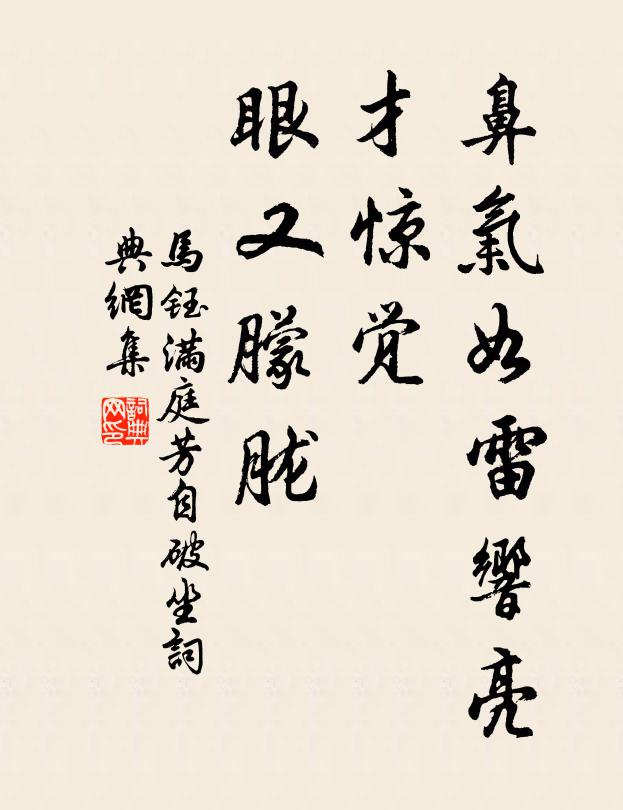 鼻氣如雷響亮
才惊觉
眼又朦胧
馬鈺满庭芳自破坐詞
典網集
詞典網印